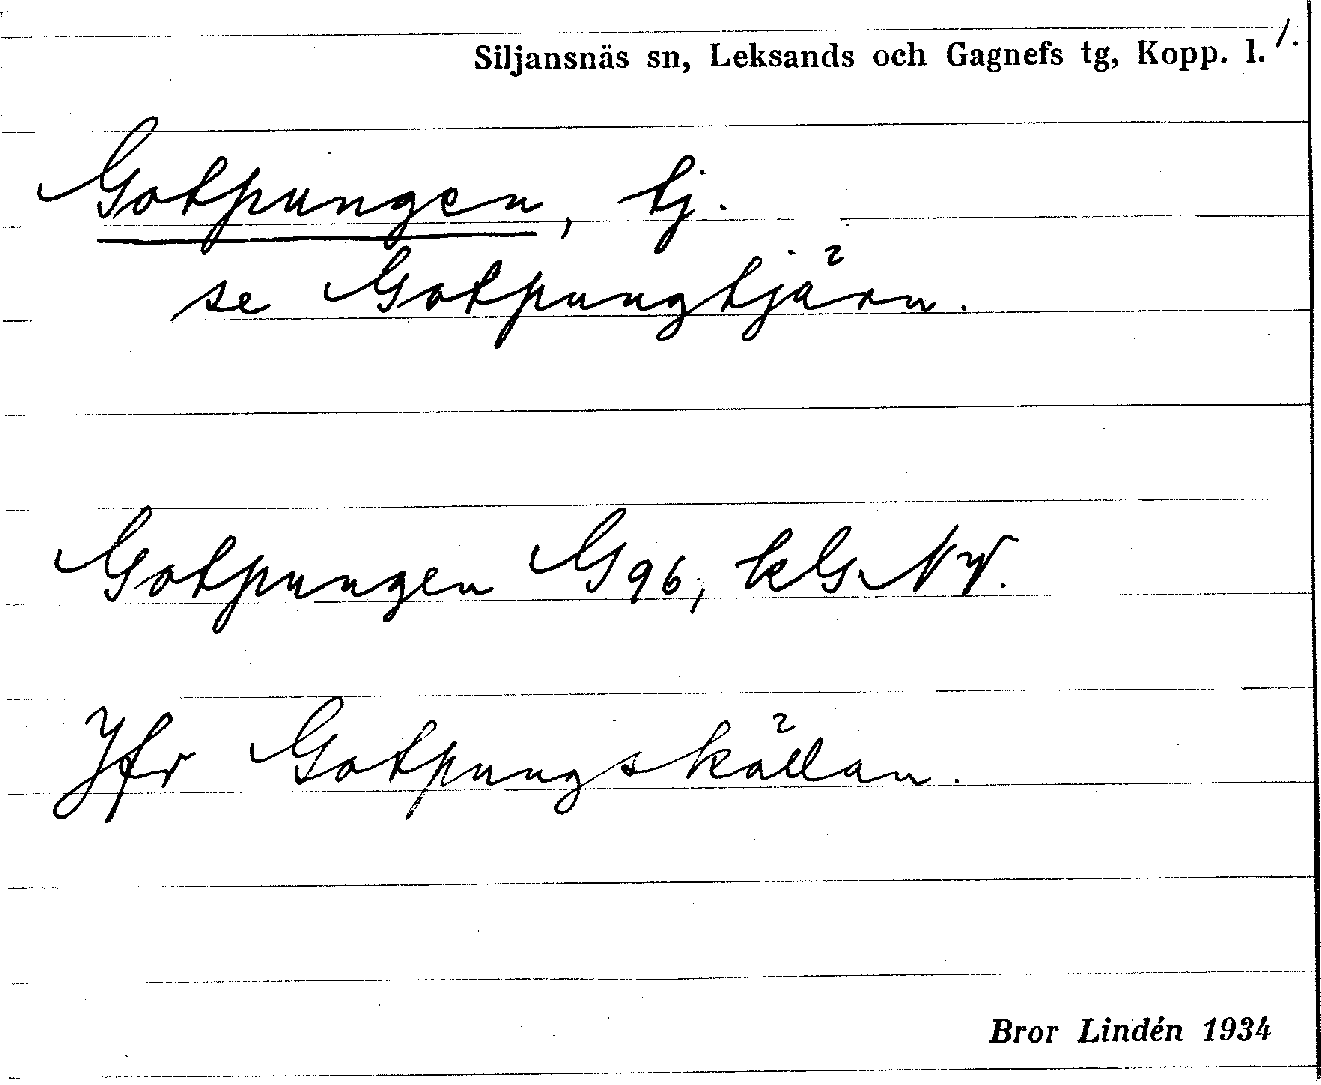 Siljansnäs sn, Leksands och Gagnefs tg, Kopp. l. 1.
Gotpungen, tj.
se Gotpungtjärn.
Gotpungen G96, kGNV.
Jfr Gotpungskällan.
Bror Lindén 1934